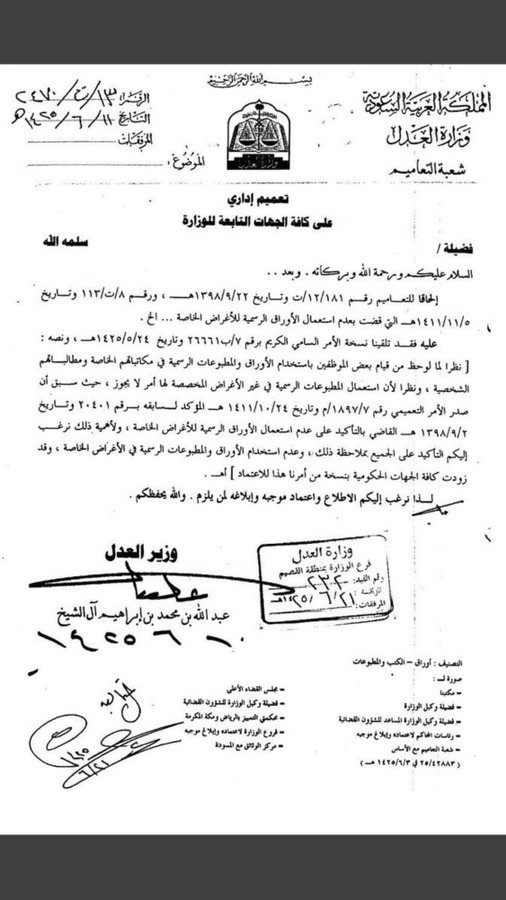 بسم الله الرحمن الرحيم
المملكة العربية السعودية
وزارة العدل
شعبة التعاميم
الرقم: ١٣/ت/٢٤٧٠
التاريخ: ١٤٢٥/٦/١١هـ
المرفقات:
الموضوع:
تعميم إداري
على كافة الجهات التابعة للوزارة
فضيلة / سلمه الله
السلام عليكم ورحمة الله وبركاته . وبعد . .
إلحاقا للتعاميم رقم ١٢/١٨١/ت وتاريخ ١٣٩٨/٩/٢٢هـ ، ورقم ٨/ت/١١٣ وتاريخ
١٤١١/١١/٥هـ التي قضت بعدم استعمال الأوراق الرسمية للأغراض الخاصة ... الخ .
عليه فقد تلقينا نسخة الأمر السامي الكريم برقم ٧/ب/٢٦٦٦١ وتاريخ ١٤٢٥/٥/٢٤هـ ، ونصه :
[ نظرا لما لوحظ من قيام بعض الموظفين باستخدام الأوراق والمطبوعات الرسمية في مكاتباتهم الخاصة ومطالباتهم
الشخصية ، ونظرا لأن استعمال المطبوعات الرسمية في غير الأغراض المخصصة لها أمر لا يجوز ، حيث سبق أن
صدر الأمر التعميمي رقم ٧/١٨٩٧/م وتاريخ ١٤١١/١٠/٢٤هـ المؤكد لسابقه برقم ٢٠٤٠١ وتاريخ
١٣٩٨/٩/٢ هـ القاضي بالتأكيد على عدم استعمال الأوراق الرسمية للأغراض الخاصة ، ولأهمية ذلك نرغب
إليكم التأكيد على الجميع بملاحظة ذلك ، وعدم استخدام الأوراق والمطبوعات الرسمية في الأغراض الخاصة ، وقد
زودت كافة الجهات الحكومية بنسخة من أمرنا هذا للاعتماد ] أهـ .
لذا نرغب إليكم الاطلاع واعتماد موجبه وإبلاغه لمن يلزم . والله يحفظكم .
وزير العدل
عبدالله بن محمد بن إبراهيم آل الشيخ
١٤٢٥ ٦ ١٠
وزارة العدل
فرع الوزارة بمنطقة القصيم
رقم القيد: ٢٣٢٠
تاريخه: ٢٥/٦/٢١هـ
المرفقات:
التصنيف : أوراق – الكتب والمطبوعات
صورة لـ :
– مكتبنا
– فضيلة وكيل الوزارة
– فضيلة وكيل الوزارة المساعد للشؤون القضائية
– رئاسات المحاكم لاعتماده وإبلاغ موجبه
– شعبة التعاميم مع الأساس
( ٢٥/٤٢٨٨٣ في ١٤٢٥/٦/٣ هـ )
– مجلس القضاء الأعلى
– فضيلة وكيل الوزارة للشؤون القضائية
– محكمتي التمييز بالرياض ومكة المكرمة
– فروع الوزارة لاعتماده وإبلاغ موجبه
– مركز الوثائق مع المسودة